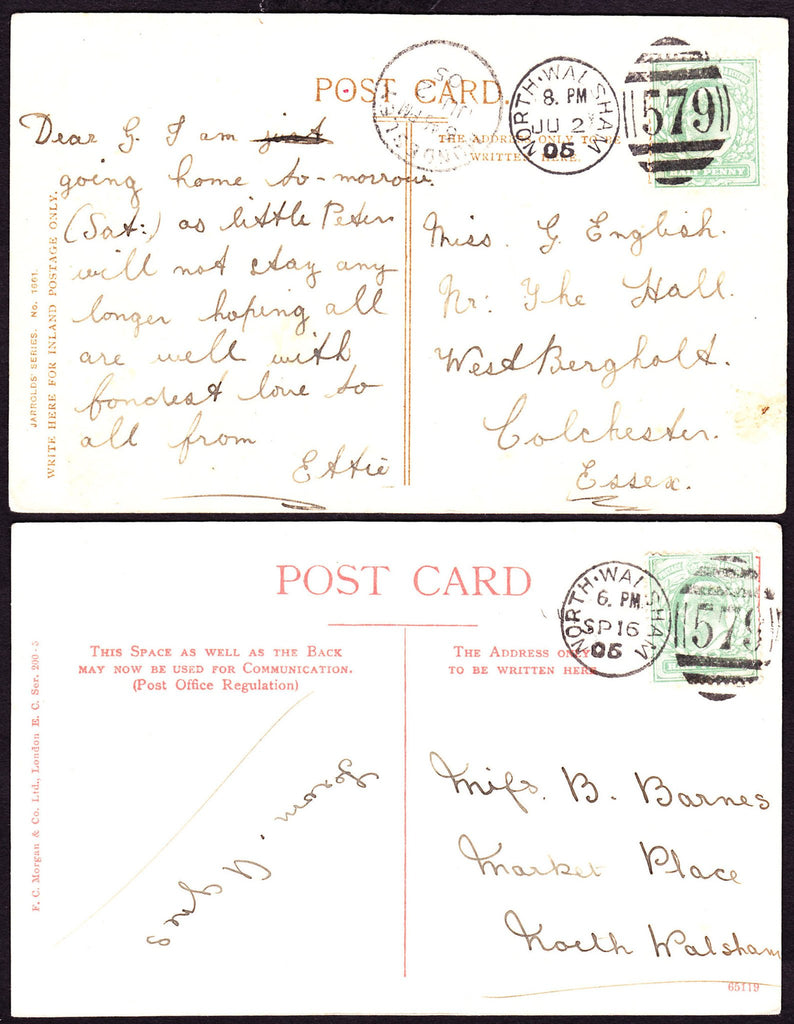 POST CARD.
THE ADDRESS ONLY TO BE
WRITTEN HERE.
NORTH·WALSHAM
8. PM
JU 2
05
579
HALF PENNY
Dear G. I am just
going home to-morrow.
(Sat:) as little Peter
will not stay any
longer hoping all
are well with
fondest love to
all from
Ettie
JARROLDS' SERIES. No. 1661.
WRITE HERE FOR INLAND POSTAGE ONLY.
Miss. G. English.
Nr: The Hall.
West Bergholt.
Colchester.
Essex.
POST CARD
THIS SPACE AS WELL AS THE BACK
MAY NOW BE USED FOR COMMUNICATION.
(Post Office Regulation)
THE ADDRESS ONLY
TO BE WRITTEN HERE
NORTH·WALSHAM
6. PM
SP 16
05
579
F. C. Morgan & Co. Ltd., London E. C. Ser. 200-3
from
Agnes
Miss. B. Barnes
Market Place
North Walsham
65119